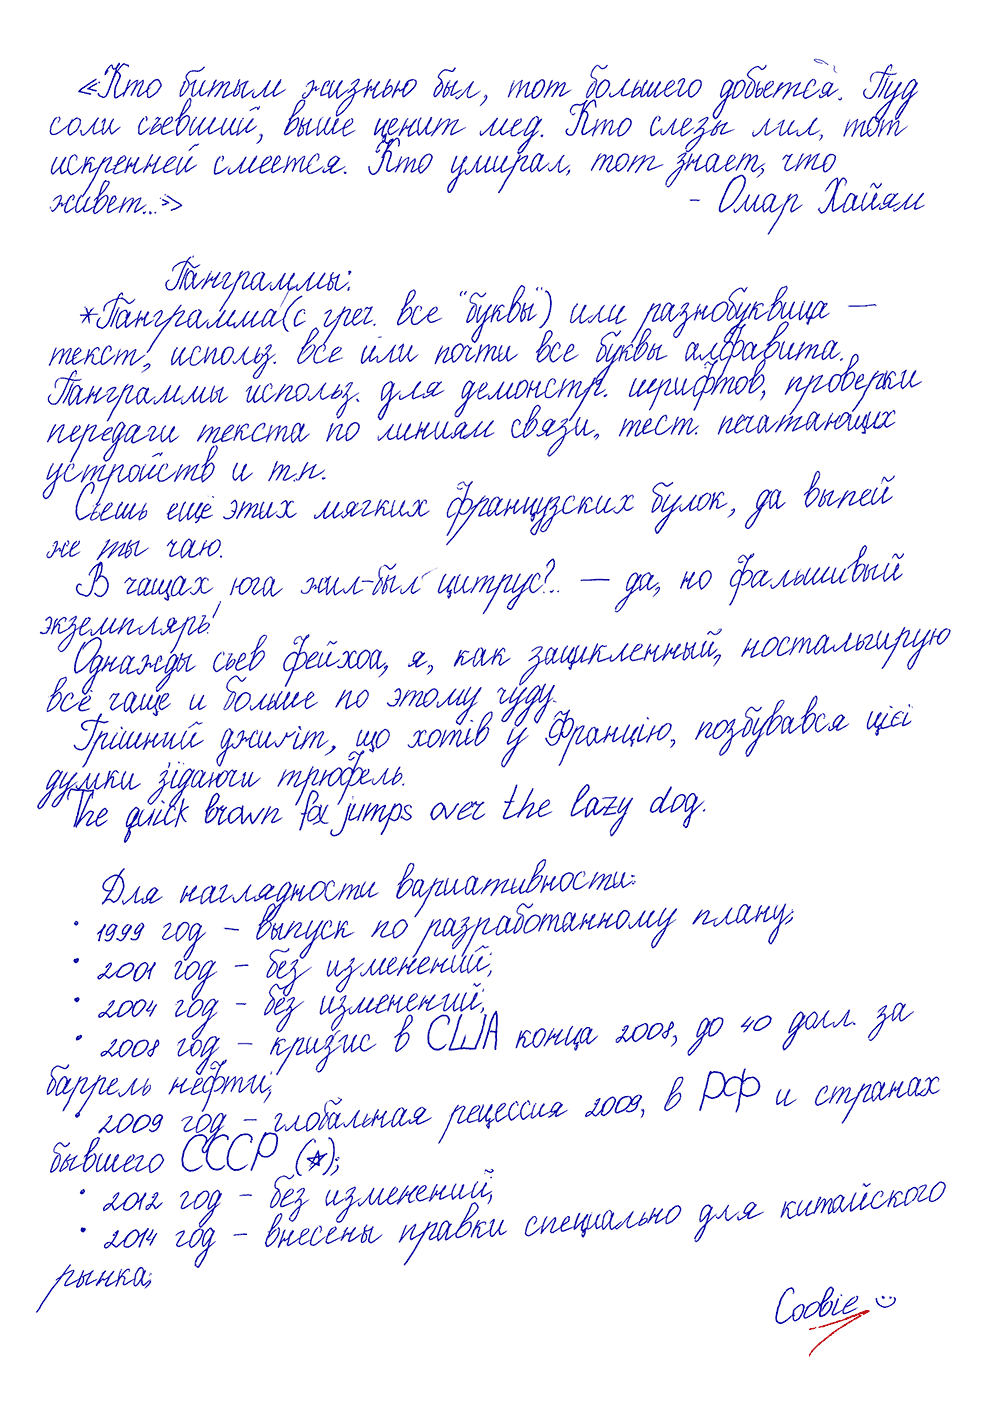 «Кто битым жизнью был, тот большего добьётся. Пуд
соли съевший, выше ценит мед. Кто слезы лил, тот
искренней смеется. Кто умирал, тот знает, что
живет...»
- Омар Хайям
Панграммы:
*Панграмма(с греч. все "буквы") или разнобуквица —
текст, использ. все или почти все буквы алфавита.
Панграммы использ. для демонстр. шрифтов, проверки
передачи текста по линиям связи, тест. печатающих
устройств и т.п.
Съешь ещё этих мягких французских булок, да выпей
же ты чаю.
В чащах юга жил-был цитрус?.. — да, но фальшивый
экземпляръ!
Однажды съев фейхоа, я, как зацикленный, ностальгирую
всё чаще и больше по этому чуду.
Грішний джиґіт, що хотів у Францію, позбувався цієї
думки з'їдаючи трюфель.
The quick brown fox jumps over the lazy dog.
Для наглядности вариативности:
• 1999 год - выпуск по разработанному плану;
• 2001 год - без изменений;
• 2004 год - без изменений;
• 2008 год - кризис в США конца 2008, до 40 долл. за
баррель нефти;
• 2009 год - глобальная рецессия 2009, в РФ и странах
бывшего СССР (☆);
• 2012 год - без изменений;
• 2014 год - внесены правки специально для китайского
рынка;
Coobie